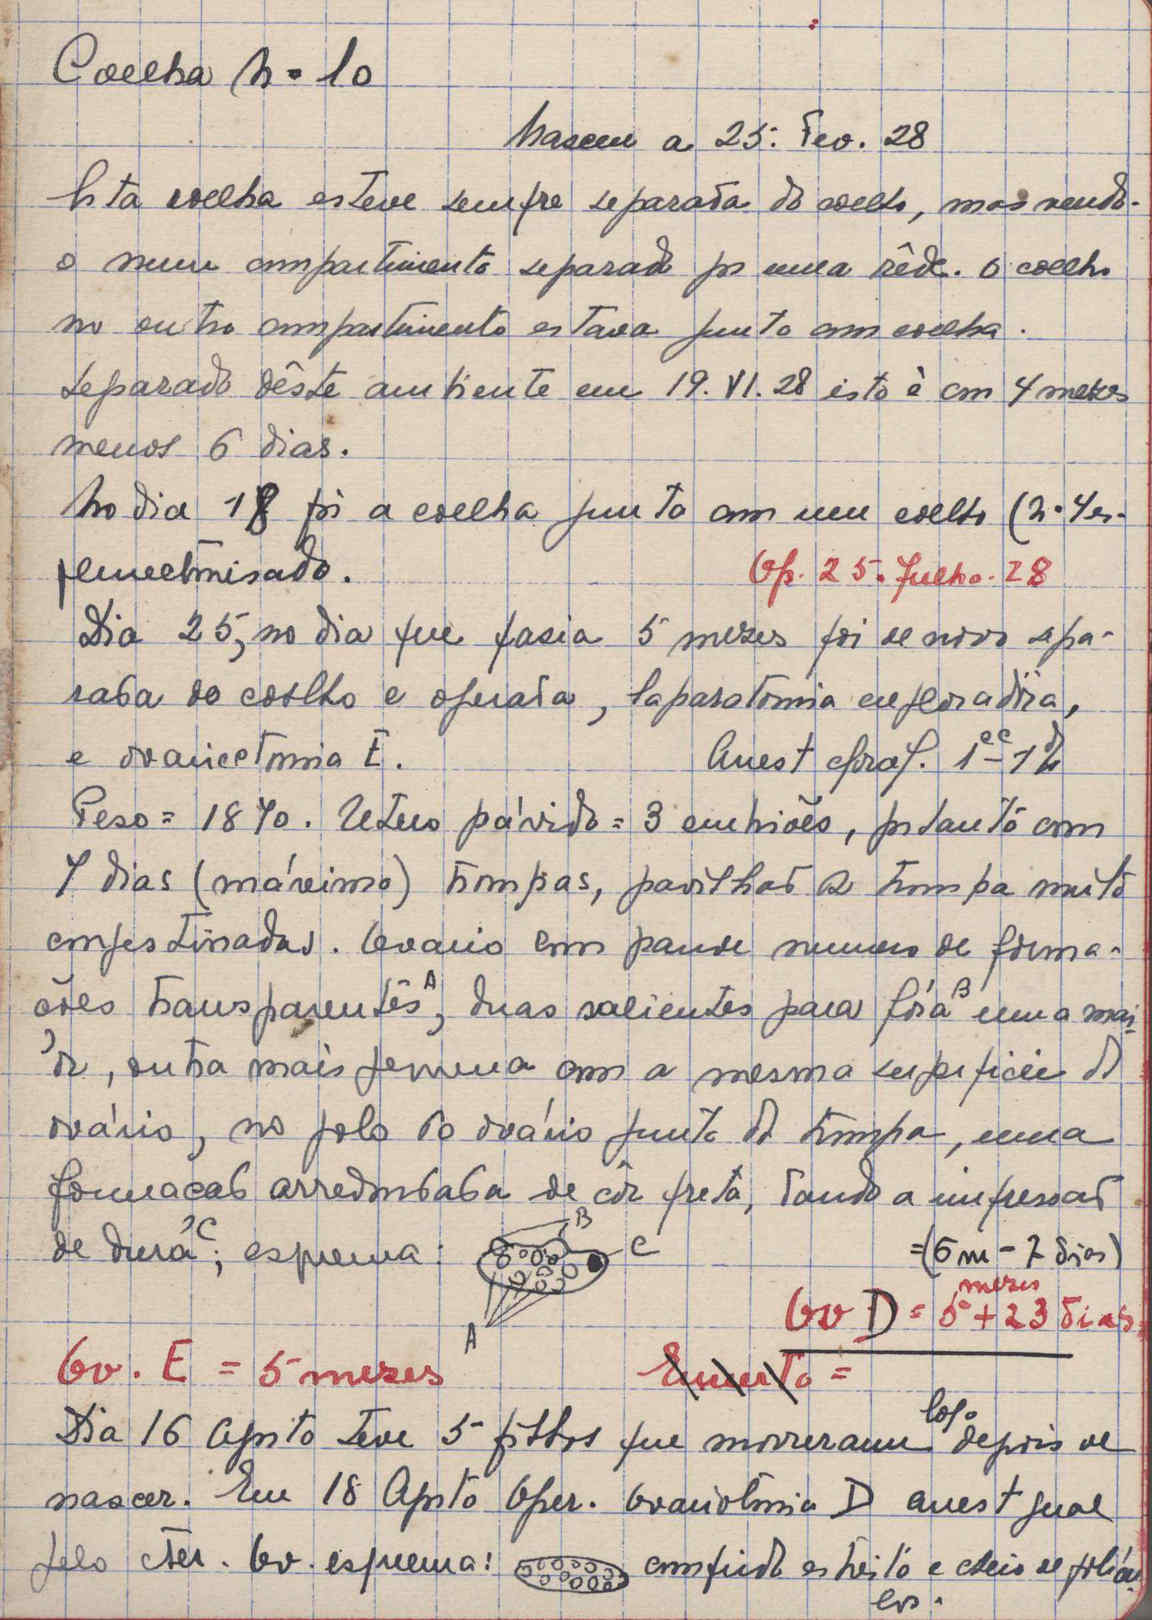 Coelha n.º 10
Nasceu a 25. Fev. 28
Esta coelha esteve sempre separada do coelho, mas vendo-
o num compartimento separado por uma rêde. O coelho
no outro compartimento estava junto com coelha.
Separado dêste ambiente em 19. VI. 28 isto é com 4 mezes
menos 6 dias.
No dia 18 foi a coelha junta com um coelho (n.º 4 es-
plenectomisado.
Op. 25. Julho. 28
Dia 25, no dia que fasia 5 mezes foi de novo sepa-
rada do coelho e operada, laparatomia exploradôra,
e ovariectomia E.
Anest cloral. 1cc - 1 k
Peso = 1870. Utero gávido = 3 embriões, portanto com
7 dias (máximo) trompas, pavilhão da trompa muito
congestionadas. Ovario com grande numero de forma-
ções transparentes A, duas salientes para fóra B uma mai-
ór, outra mais pequena com a mesma superficie do
ovário, no polo do ovário junto da trompa, uma
formacao arredondada de côr preta, dando a impressão
de dura C; esquema:
B
C
A
= (6 m - 7 dias)
Ov D = 5 mezes + 23 dias.
Ov. E = 5 mezes
=
Dia 16 Agosto teve 5 filhos que morreram logo depois de
nascer. Em 18 Agosto Oper. Ovariotomia D anest geral
pelo eter. Ov. esquema: comprido estreito e cheio de folicu-
los.